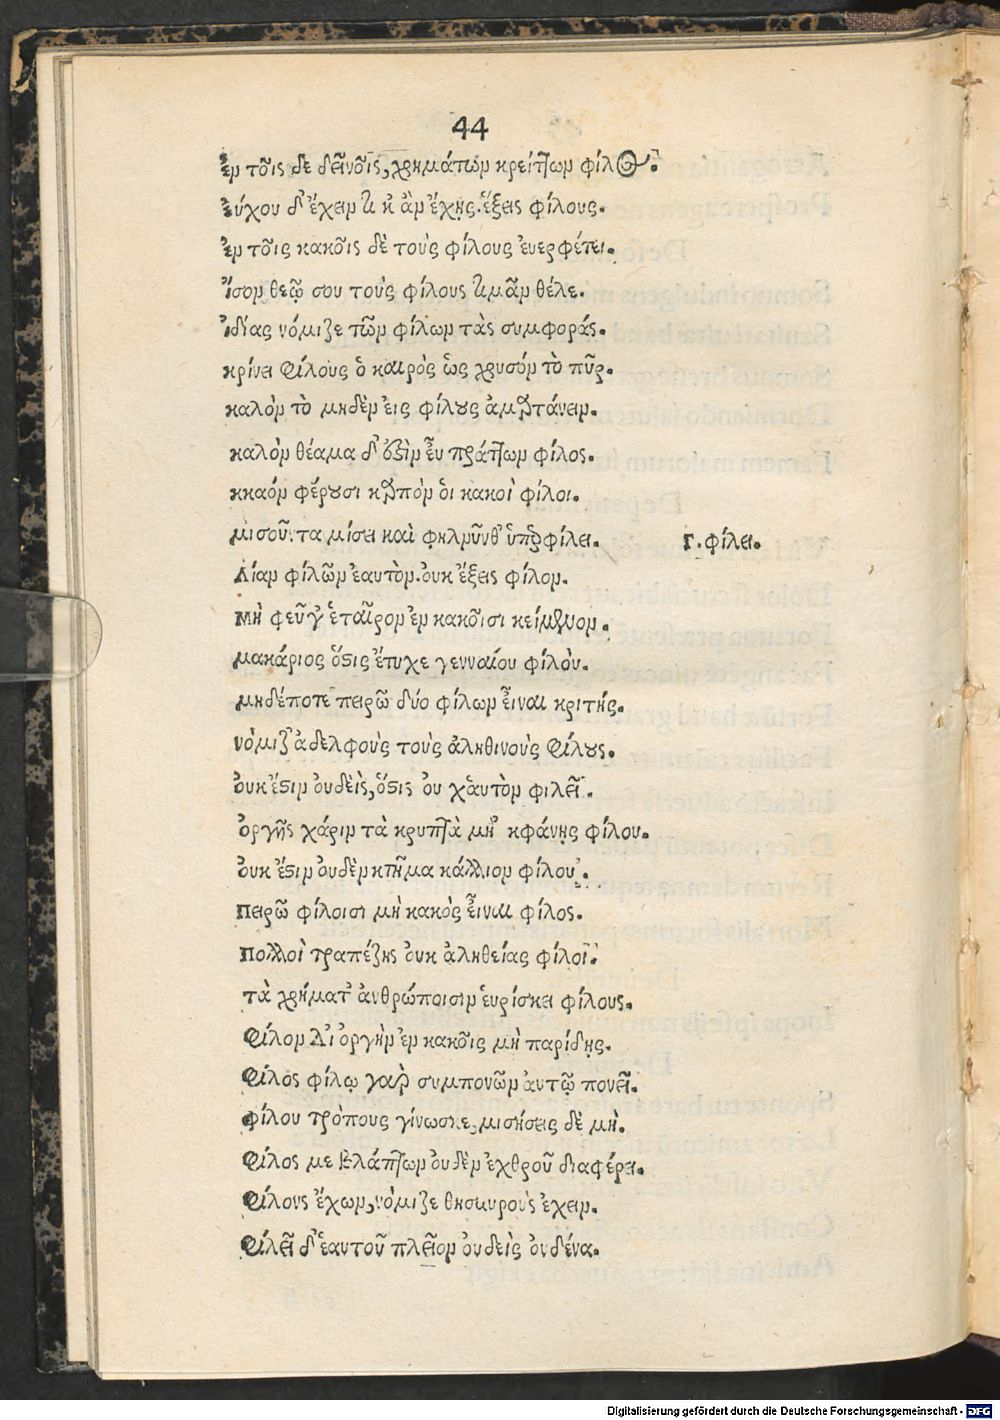 44
ἐν τοῖς δὲ δεινοῖς, χρημάτων κρείττων φίλος.
ἔυχου δ' ἔχειν τι κἂν ἔχῃς. ἕξεις φίλους.
ἐν τοῖς κακοῖς δὲ τοὺς φίλους ἐυεργέτει.
ἴσον θεῷ σου τοὺς φίλους τιμᾶν θέλε.
ἰδίας νόμιζε τῶν φίλων τὰς συμφοράς.
κρίνει φίλους ὁ καιρὸς ὡς χρυσόν τὸ πῦρ.
καλὸν τὸ μηδὲν ἐις φίλους ἁμαρτάνειν.
καλὸν θέαμα δ' ὀστὶν ἐυ πράττων φίλος.
κακόν φέρουσι καρπὸν ὁι κακοὶ φίλοι.
μισοῦντα μίσει καὶ φιλοῦνθ' ὑπερφίλει.
Γ. φίλει.
Λίαν φιλῶν ἑαυτὸν. ὀυκ ἕξεις φίλον.
Μὴ φεῦγ' ἑταῖρον ἐν κακοῖσι κείμενον.
μακάριος ὅστις ἔτυχε γενναίου φίλου.
μηδέποτε πειρῶ δύο φίλων εἶναι κριτής.
νόμιζ' ἀδελφοὺς τοὺς ἀληθινοὺς φίλους.
ὀυκ ἔστιν ὀυδεὶς, ὅστις ὀυχ ἁυτὸν φιλεῖ.
ὀργῆς χάριν τὰ κρυπτὰ μὴ κφάνῃς φίλου.
ὀυκ ἔστιν ὀυδὲν κτῆμα κάλλιον φίλου.
Πειρῶ φίλοισι μὴ κακὸς εἶναι φίλος.
Πολλοὶ τραπέζης ὀυκ ἀληθείας φίλοι.
τὰ χρήματ' ἀνθρώποισιν ἑυρίσκει φίλους.
Φίλον δι' ὀργὴν ἐν κακοῖς μὴ παρίδῃς.
Φίλος φίλῳ γὰρ συμπονῶν ἀυτῷ πονεῖ.
Φίλου τρόπους γίνωσκε, μισήσεις δὲ μὴ.
Φίλος με βλάπτων ὀυδὲν ἐχθροῦ διαφέρει.
Φίλους ἔχων, νόμιζε θησαυροὺς ἔχειν.
Φιλεῖ δ' ἑαυτοῦ πλεῖον ὀυδεὶς ὀυδένα.
Digitalisierung gefördert durch die Deutsche Forschungsgemeinschaft - DFG